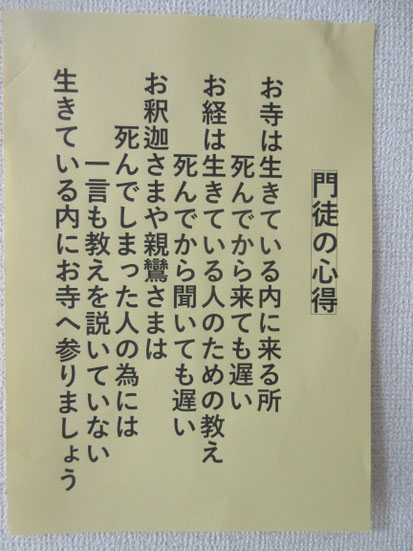 門徒の心得
お寺は生きている内に来る所
死んでから来ても遅い
お経は生きている人のための教え
死んでから聞いても遅い
お釈迦さまや親鸞さまは
死んでしまった人の為には
一言も教えを説いていない
生きている内にお寺へ参りましょう